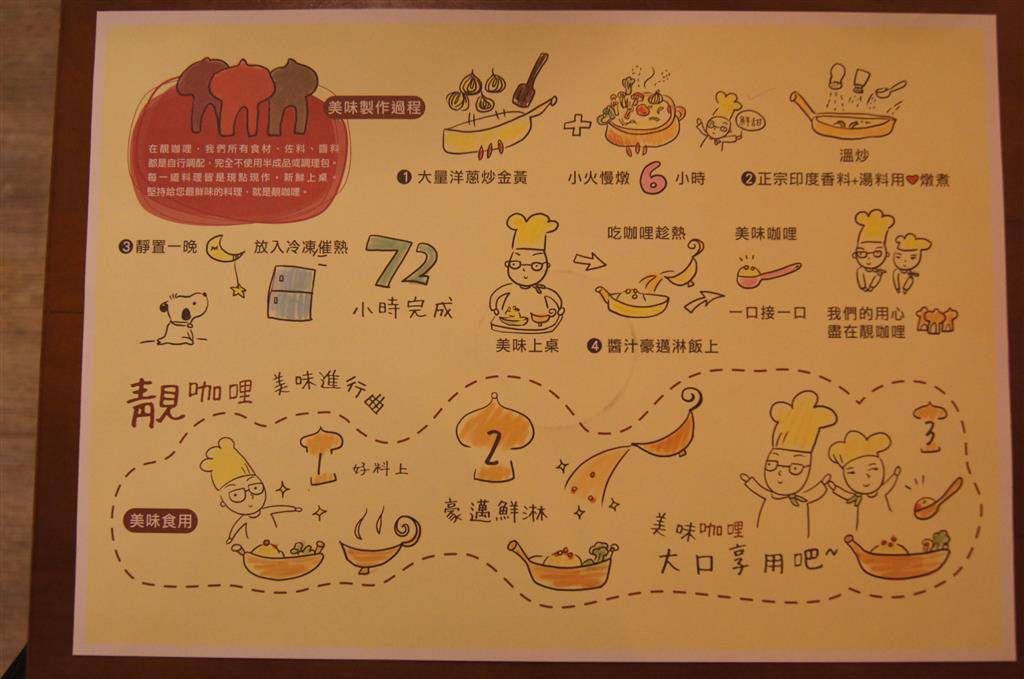 美味製作過程
在靚咖哩，我們所有食材、佐料、醬料
都是自行調配，完全不使用半成品或調理包。
每一道料理皆是現點現作。新鮮上桌。
堅持給您最鮮味的料理，就是靚咖哩。
鮮甜
溫炒
1 大量洋蔥炒金黃
小火慢燉 6 小時
2 正宗印度香料+湯料用❤燉煮
3 靜置一晚
放入冷凍催熟
72
小時完成
美味上桌
吃咖哩趁熱
4 醬汁豪邁淋飯上
美味咖哩
一口接一口
我們的用心
盡在靚咖哩
靚咖哩 美味進行曲
美味食用
1
好料上
2
豪邁鮮淋
3
美味咖哩
大口享用吧~